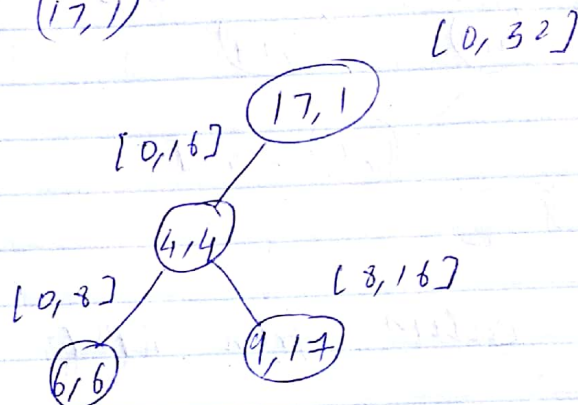 (17,1)
[0,32]
17,1
[0,16]
4,4
[0,8]
[8,16]
6,6
9,17